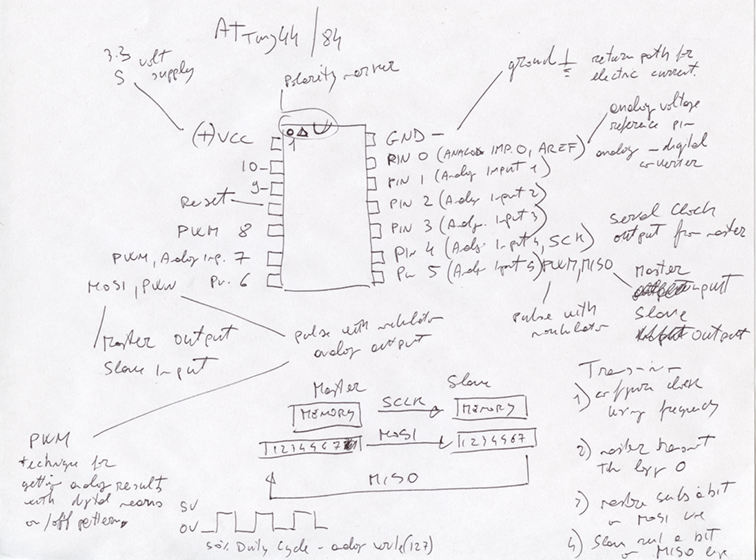 ATTiny44/84
3.3 volt
5 supply
polarity marker
ground
return path for
electric current.
(+) VCC
1
GND -
analog voltage
reference pin
analog - digital
converter
PIN 0 (ANALOG INP. 0, AREF)
10-
PIN 1 (Analog Input 1)
9-
PIN 2 (Analog Input 2)
Reset
PIN 3 (Analog. Input 3)
PWM 8
Pin 4 (Analog. Input 4, SCK)
Serial clock
output from master
PWM, Analog Inp. 7
Pin 5 (Analog. Input 5) PWM, MISO
MOSI, PWM Pin. 6
Master
input
Slave
output
pulse with
modulator
Master output
Slave Input
pulse with modulator
analog output
Master
Slave
MEMORY
SCLK
MEMORY
MOSI
MISO
1) configure clock
using frequency
2) master transmit
the logic 0
3) master sends a bit
on MOSI line
4) Slave read a bit
on MISO line
PWM
technique for
getting analog results
with digital means
on/off pattern.
5V
0V
50% Duty Cycle - analog write (127)